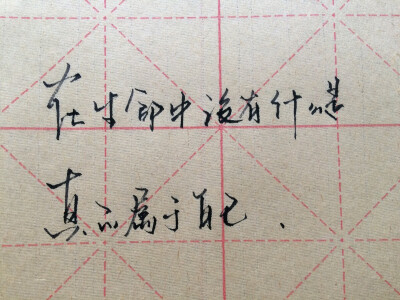 在生命中没有什么是
真正属于自己、